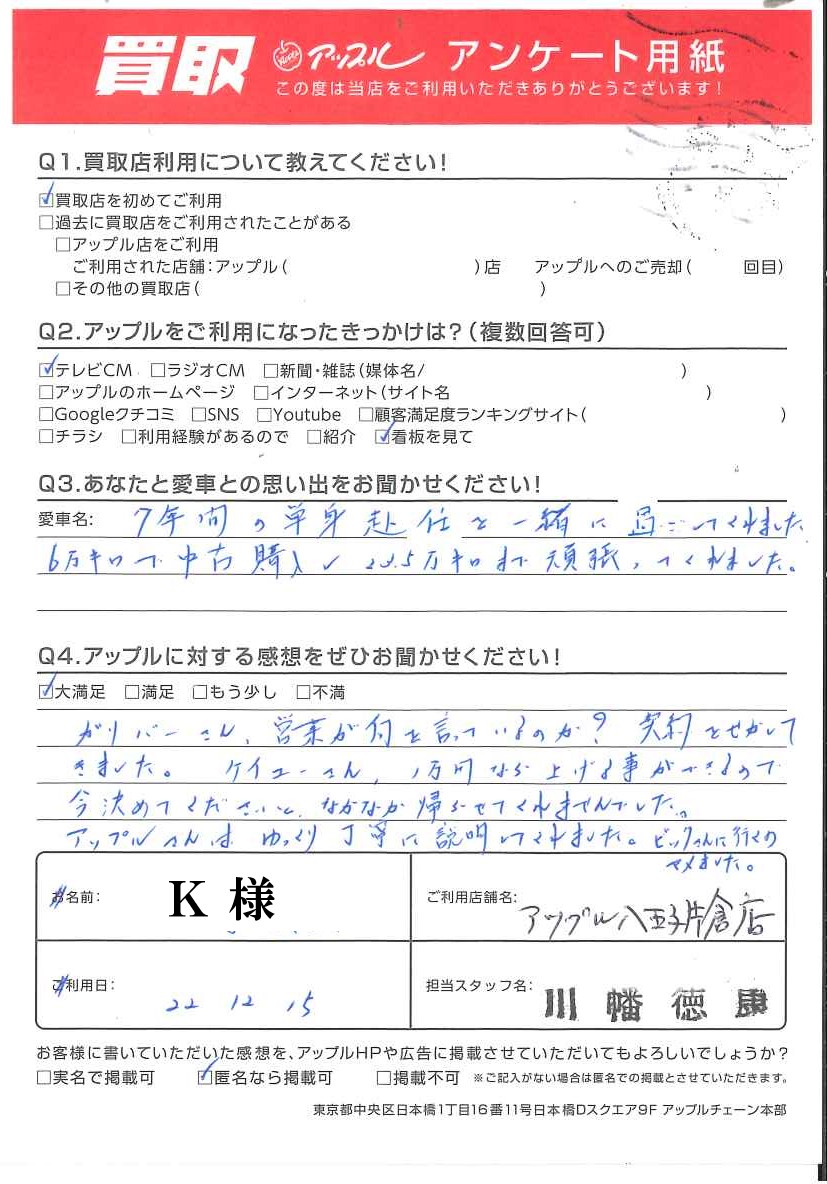 買取 アップル アンケート用紙
この度は当店をご利用いただきありがとうございます!
Q1.買取店利用について教えてください!
☑買取店を初めてご利用
□過去に買取店をご利用されたことがある
□アップル店をご利用
ご利用された店舗:アップル( )店 アップルへのご売却( 回目)
□その他の買取店( )
Q2.アップルをご利用になったきっかけは?(複数回答可)
☑テレビCM □ラジオCM □新聞・雑誌(媒体名/ )
□アップルのホームページ □インターネット(サイト名 )
□Googleクチコミ □SNS □Youtube □顧客満足度ランキングサイト( )
□チラシ □利用経験があるので □紹介 ☑看板を見て
Q3.あなたと愛車との思い出をお聞かせください!
愛車名: 7年間の単身赴任を一緒に過ごしてくれました
6万キロで中古購入し 23.5万キロまで頑張ってくれました。
Q4.アップルに対する感想をぜひお聞かせください!
☑大満足 □満足 □もう少し □不満
ガリバーさん、営業が何を言っているのか? 契約をせかして
きました。 ケイユーさん、1万円なら上げる事ができるので
今決めてくださいと、なかなか帰らせてくれませんでした。
アップルさんは ゆっくり丁寧に説明してくれました。ビッグさんに行くの
ヤメました。
お名前: K 様
ご利用店舗名: アップル八王子片倉店
ご利用日: 22 12 15
担当スタッフ名: 川幡 徳康
お客様に書いていただいた感想を、アップルHPや広告に掲載させていただいてもよろしいでしょうか?
□実名で掲載可 ☑匿名なら掲載可 □掲載不可 ※ご記入がない場合は匿名での掲載とさせていただきます。
東京都中央区日本橋1丁目16番11号日本橋Dスクエア9F アップルチェーン本部